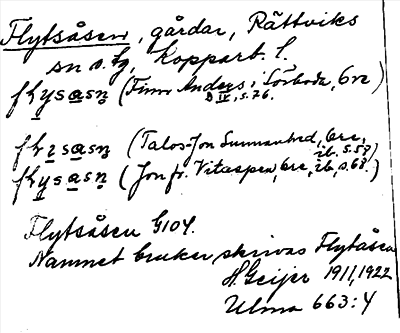 Flytsåsen, gårdar, Rättviks
sn o. tg, Kopparb. l.
(Finn Anders i Sörboda, Ore
B IV, s. 76.
(Talos-Jon Sunnanhed, Ore,
ib. s. 57)
(Jon fr. Vitaspen, Ore, ib, s. 68.)
Flytsåsen G104.
Namnet bruker skrivas Flytåsen
H. Geijer 1911, 1922
Ulma 663:4